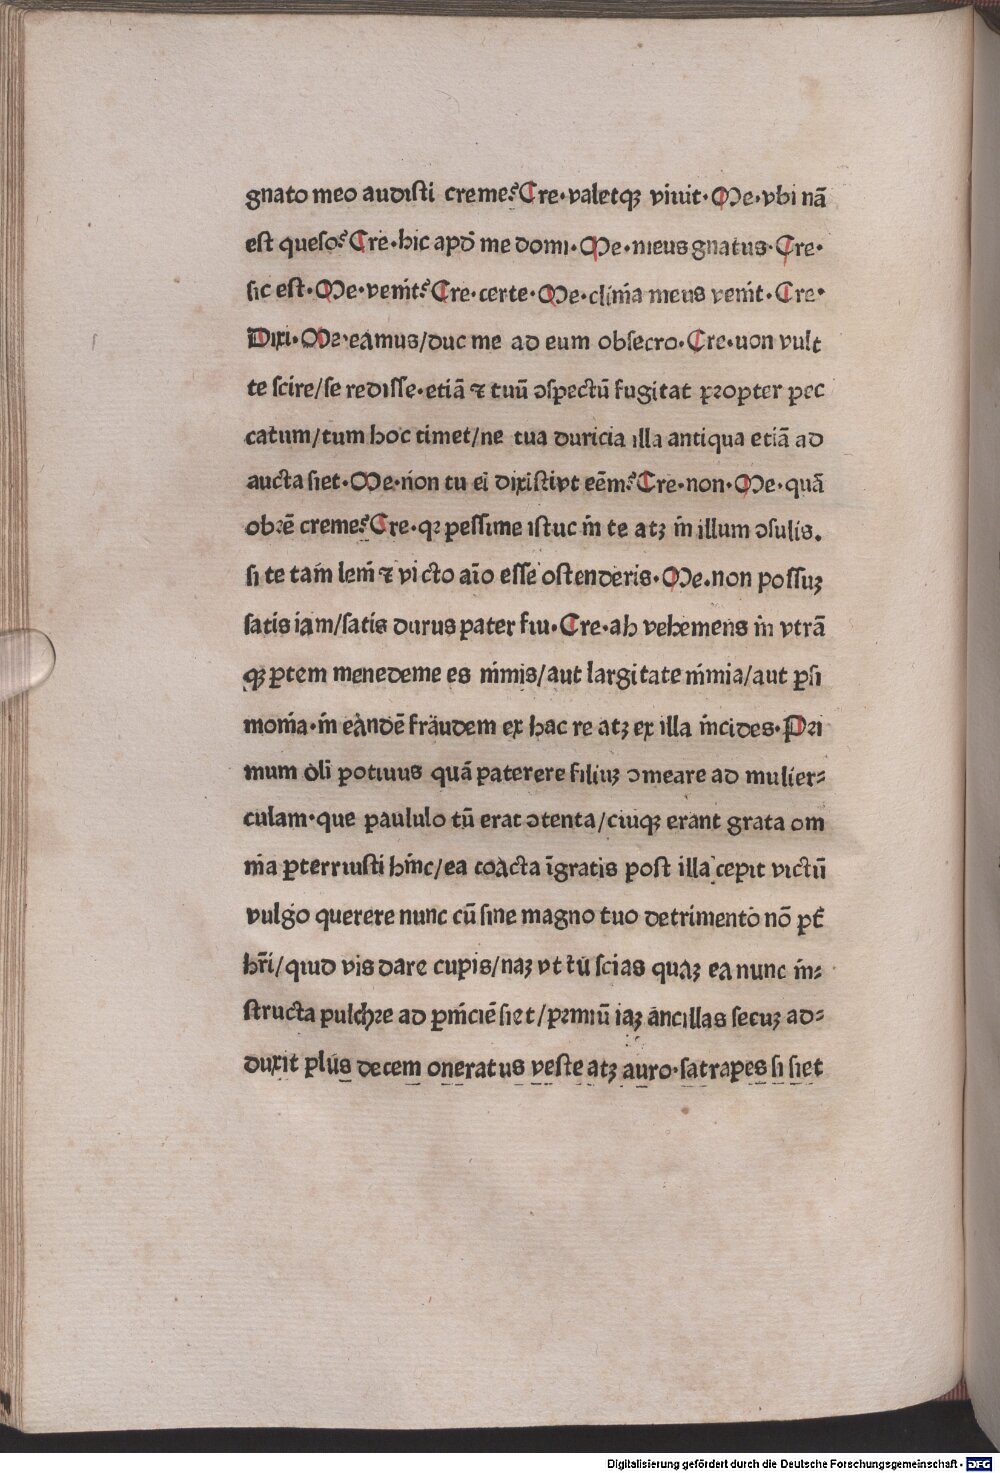 gnato meo audisti cremes? Cre·valetqꝫ viuit·Me·vbi nã
est queso? Cre·hic apđ me domi·Me·meus gnatus·Cre·
sic est·Me·venit? Cre·certe·Me·clinia meus venit·Cre·
Dixi·Me·eamus/duc me ad eum obsecro·Cre·uon vult
te scire/se redisse·etiã ⁊ tuũ ↄspectũ fugitat propter pec
catum/tum hoc timet/ne tua duricia illa antiqua etiã ad
aucta siet·Me·non tu ei dixisti vt eẽm? Cre·non·Me·quã
obrẽ cremes? Cre·qꝛ pessime istuc in te atꝫ in illum ↄsulis.
si te tam leni ⁊ victo aĩo esse ostenderis·Me.non possuꝫ
satis iam/satis durus pater fui·Cre·ah vehemens in vtrã
qꝫ ꝑtem menedeme es nimis/aut largitate nimia/aut ꝑsi
monia·in eandẽ fraudem ex hac re atꝫ ex illa incides·Pri
mum oli potiuus quã paterere filiuꝫ ↄmeare ad mulier⸗
culam·que paululo tũ erat ↄtenta/ciuqꝫ erant grata om
nia ꝑterruisti hinc/ea coacta ĩgratis post illa cepit victũ
vulgo querere nunc cũ sine magno tuo detrimento nõ pt̃
hr̃i/quid vis dare cupis/naꝫ vt tu scias quaꝫ ea nunc in⸗
structa pulchre ad ꝑniciẽ siet/prmiũ iaꝫ ancillas secuꝫ ad⸗
duxit plus decem oneratus veste atꝫ auro·satrapes si siet
Digitalisierung gefördert durch die Deutsche Forschungsgemeinschaft - DFG